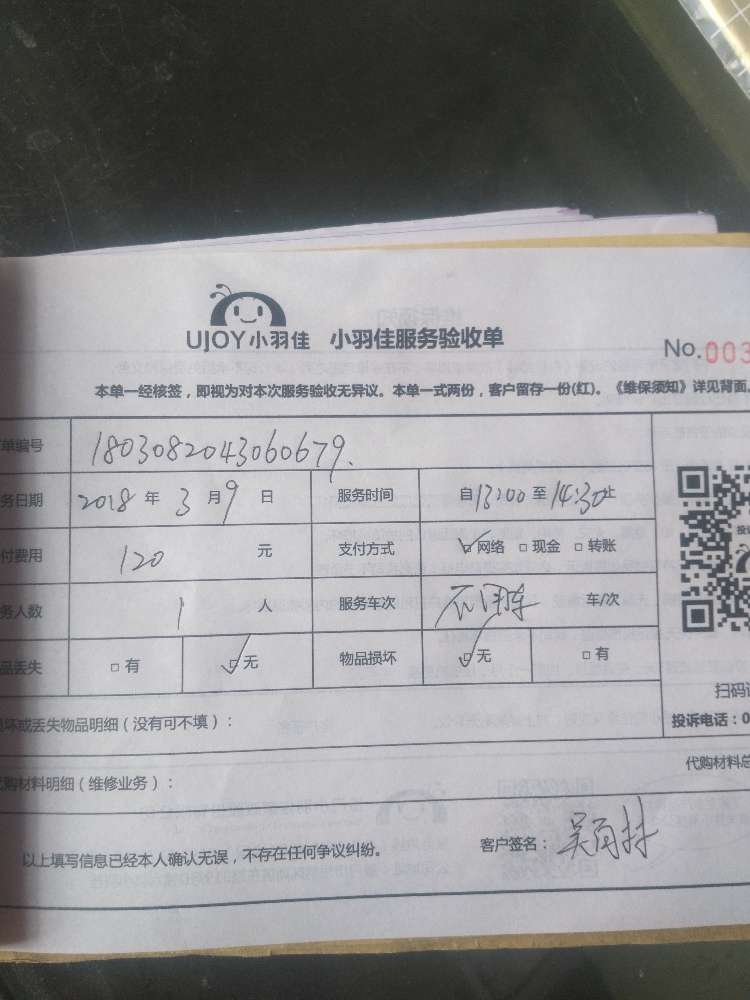 UJOY小羽佳 小羽佳服务验收单
No.003
本单一经核签，即视为对本次服务验收无异议。本单一式两份，客户留存一份(红)。《维保须知》详见背面。
单编号 1803082043060679.
务日期 2018 年 3 月 9 日 服务时间 自13:00至14:30止
付费用 120 元 支付方式 ☑网络 □现金 □转账
务人数 1 人 服务车次 车/次
品丢失 □有 ☑无 物品损坏 ☑无 □有
扫码
损坏或丢失物品明细（没有可不填）：
投诉电话：0
代购材料明细（维修业务）：
代购材料总
以上填写信息已经本人确认无误，不存在任何争议纠纷。
客户签名：吴